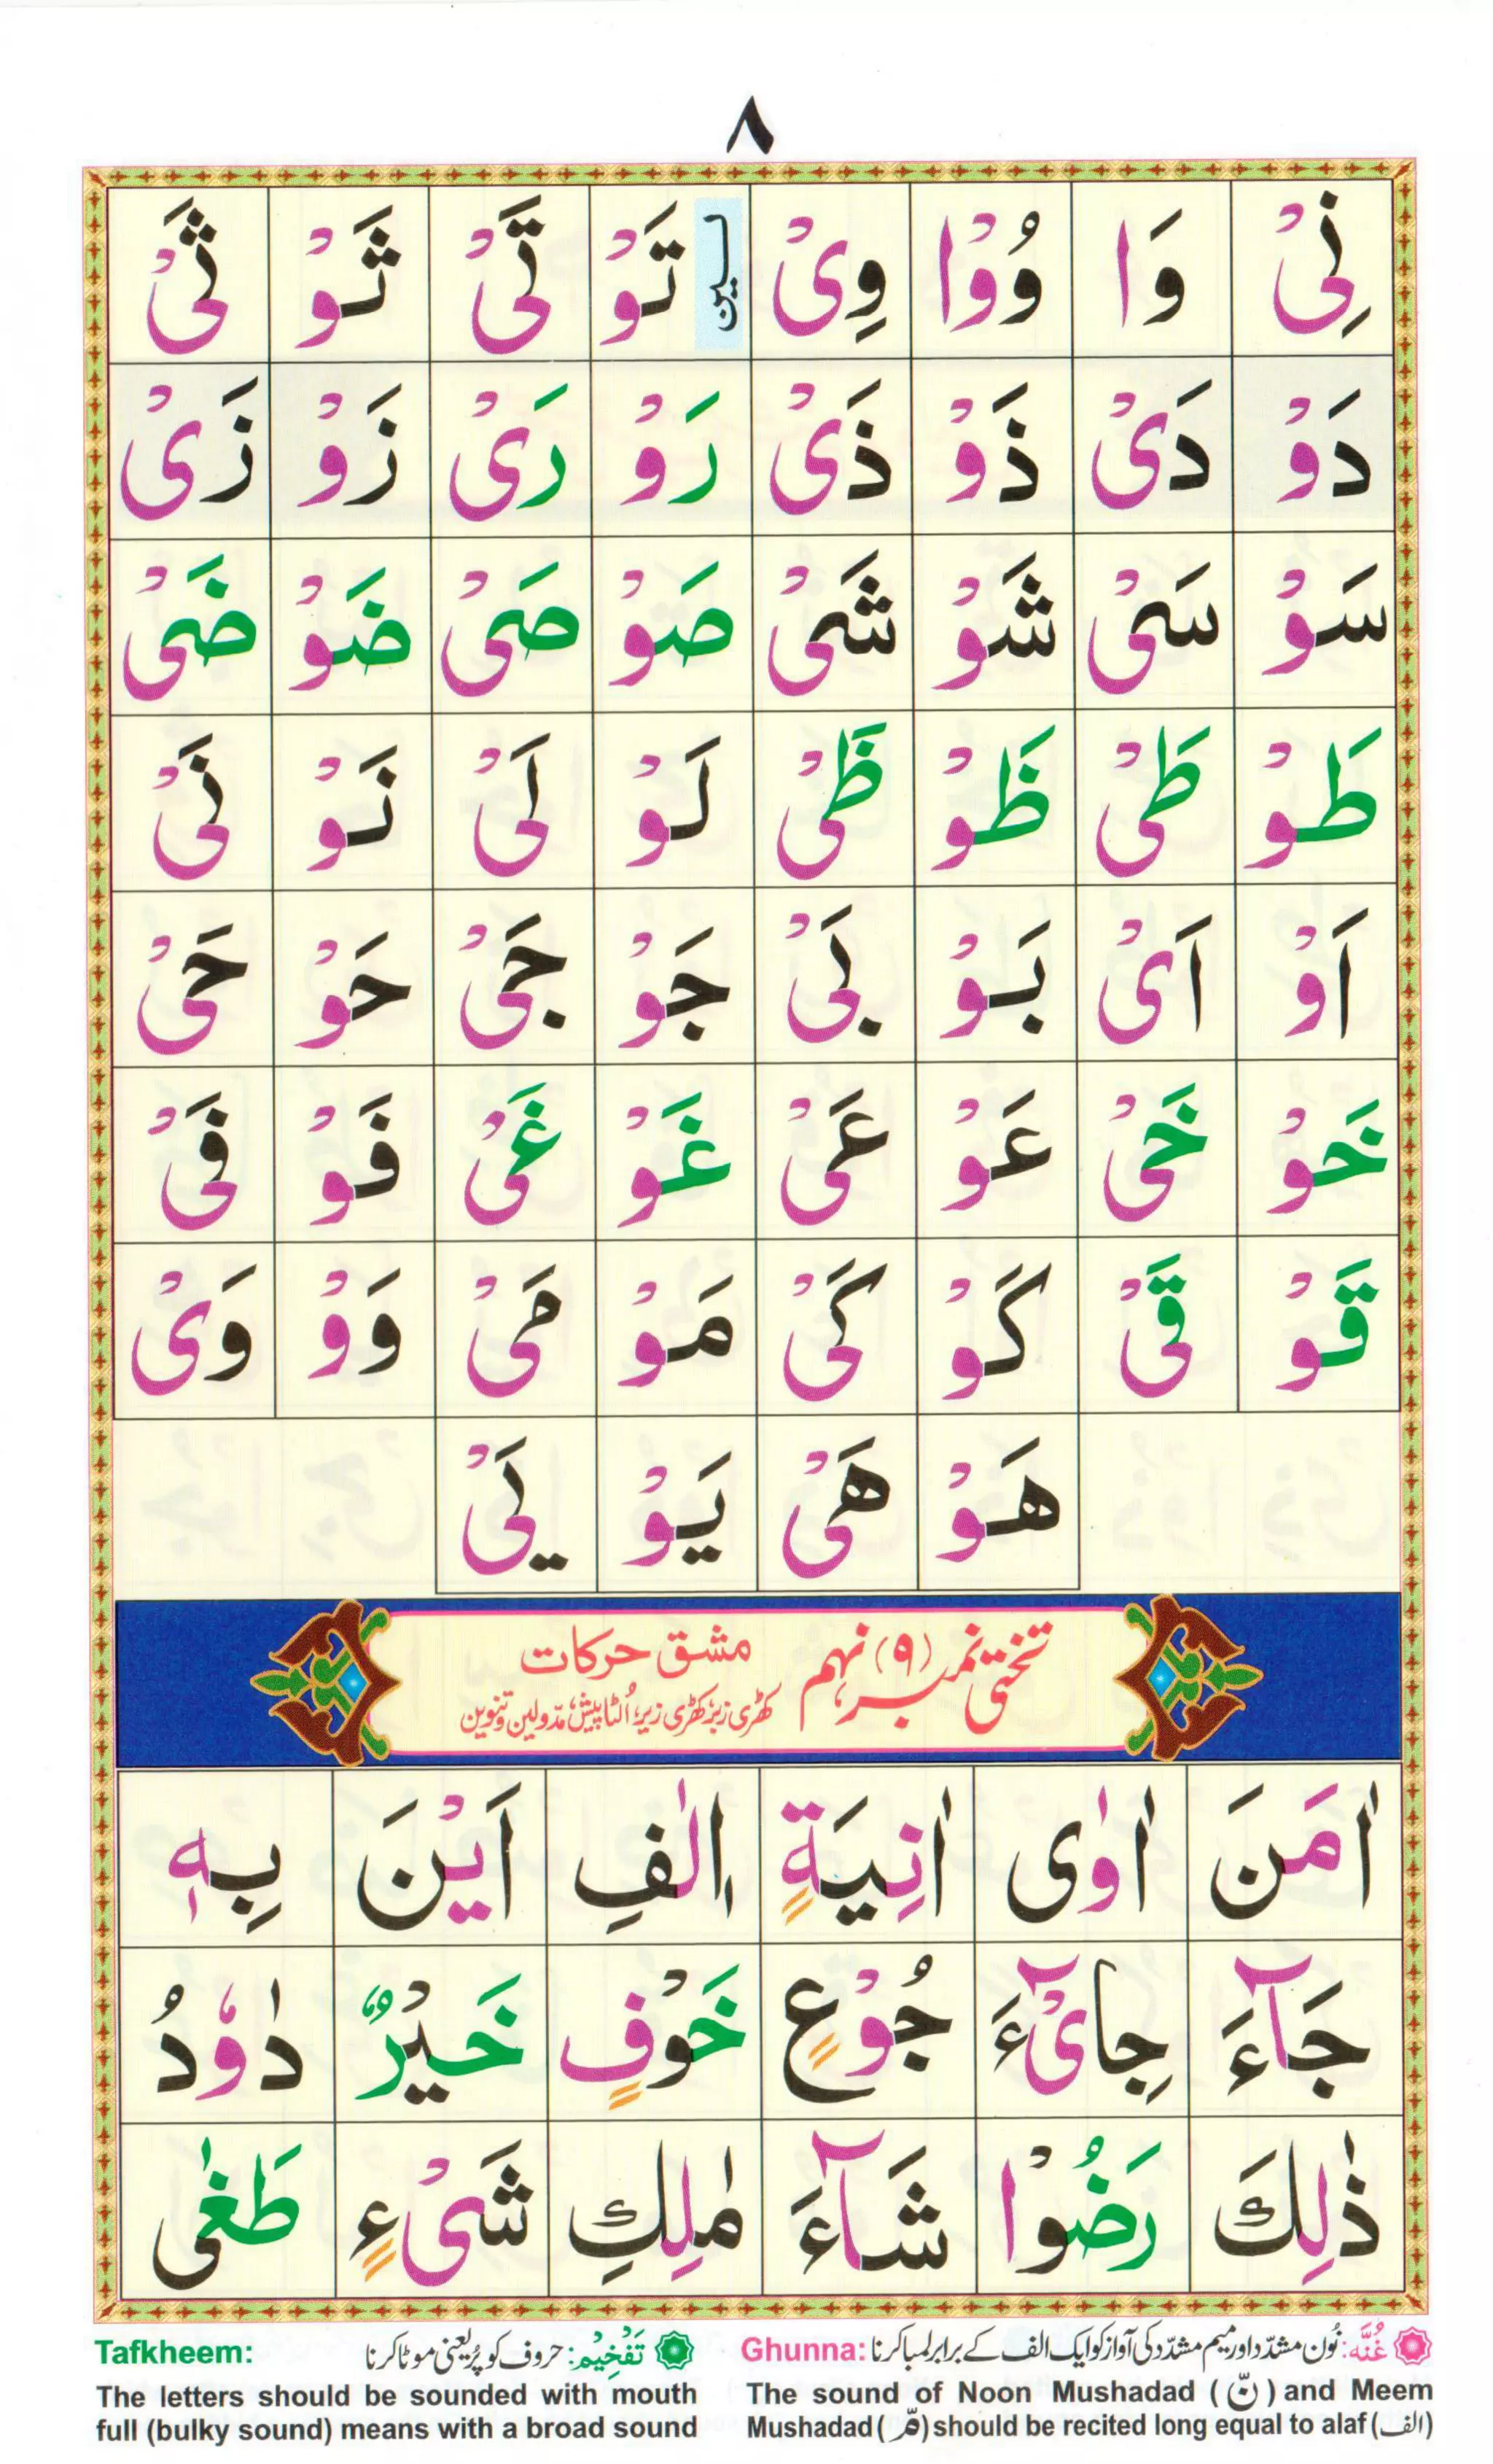 ٨
نِیْ وَا وُوْا وِیْ لین تَوْ تَیْ ثَوْ ثَیْ
دَوْ دَیْ ذَوْ ذَیْ رَوْ رَیْ زَوْ زَیْ
سَوْ سَیْ شَوْ شَیْ صَوْ صَیْ ضَوْ ضَیْ
طَوْ طَیْ ظَوْ ظَیْ لَوْ لَیْ نَوْ نَیْ
اَوْ اَیْ بَوْ بَیْ جَوْ جَیْ حَوْ حَیْ
خَوْ خَیْ عَوْ عَیْ غَوْ غَیْ فَوْ فَیْ
قَوْ قَیْ كَوْ كَیْ مَوْ مَیْ وَوْ وَیْ
هَوْ هَیْ یَوْ یَیْ
تختی نمبر (۹) نہم مشق حرکات
کھڑی زبر، کھڑی زیر، اُلٹا پیش، مدّولین و تنوین
اٰمَنَ اٰوٰی اٰنِیَةٍ اٖلٰفِ اَیْنَ بِهٖ
جَآءَ جِایْٓءَ جُوْعٍ خَوْفٍ خَیْرٌ دٰوٗدُ
ذٰلِكَ رَضُوْا شَآءَ مٰلِكِ شَیْءٍ طَغٰی
Ghunna: غُنَّه: نُون مشدّد اور میم مشدّد کی آواز کو ایک الف کے برابر لمبا کرنا
The sound of Noon Mushadad (نّ) and Meem
Mushadad (مّ) should be recited long equal to alaf (الف)
Tafkheem: تَفْخِیْم: حروف کو پُر یعنی موٹا کرنا
The letters should be sounded with mouth
full (bulky sound) means with a broad sound